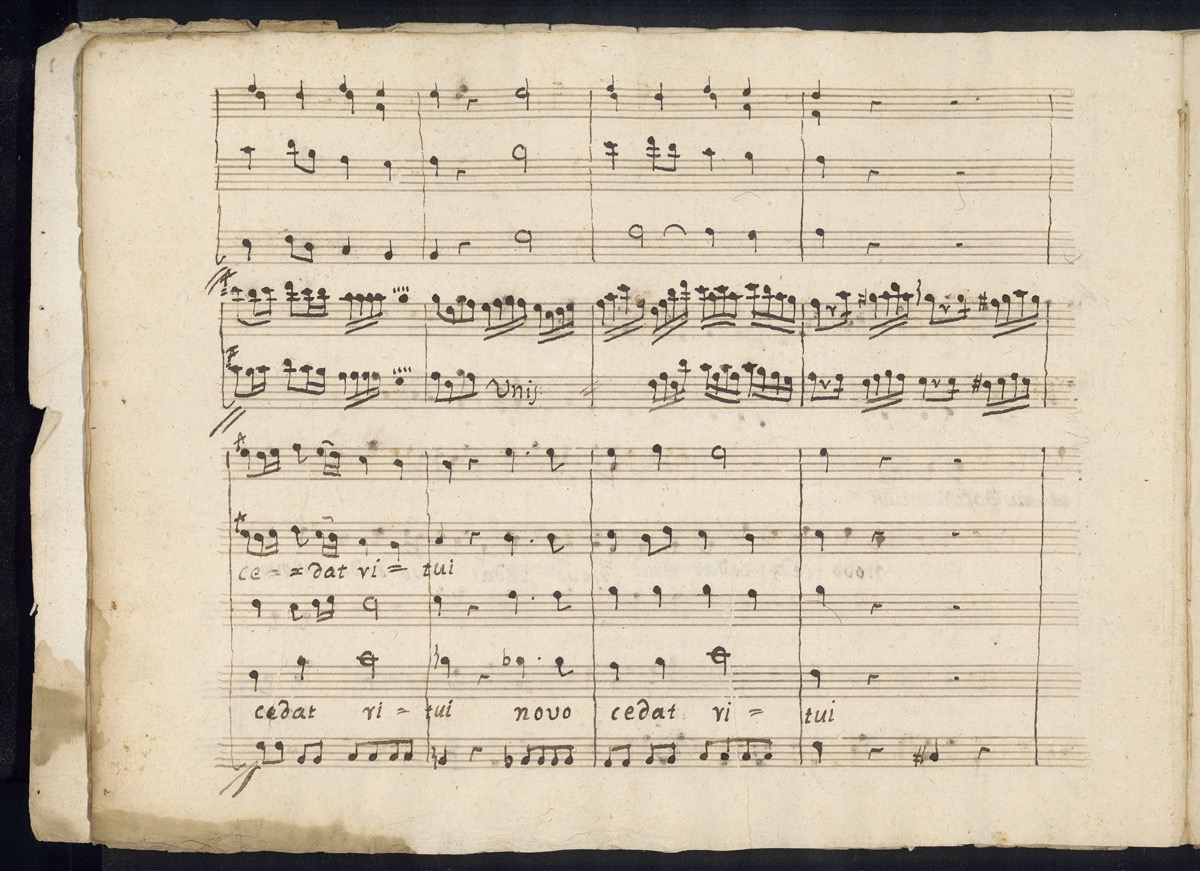 Unis.
ce = = dat ri = tui
cedat ri = tui novo cedat ri = tui